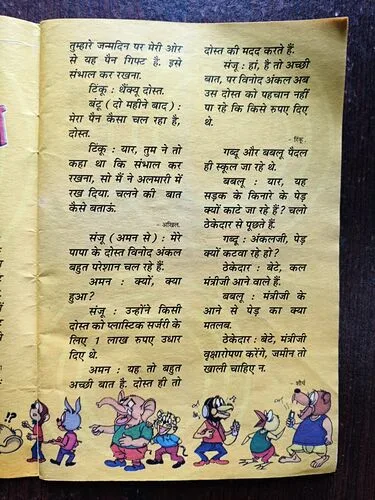 तुम्हारे जन्मदिन पर मेरी ओर
से यह पैन गिफ्ट है. इसे
संभाल कर रखना.
टिंकू : थैंक्यू दोस्त.
बंटू (दो महीने बाद) :
मेरा पैन कैसा चल रहा है,
दोस्त.
टिंकू : यार, तुम ने तो
कहा था कि संभाल कर
रखना, सो मैं ने अलमारी में
रख दिया. चलने की बात
कैसे बताऊं.
- अखिल.
संजू (अमन से) : मेरे
पापा के दोस्त विनोद अंकल
बहुत परेशान चल रहे हैं.
अमन : क्यों, क्या
हुआ?
संजू : उन्होंने किसी
दोस्त को प्लास्टिक सर्जरी के
लिए 1 लाख रुपए उधार
दिए थे.
अमन : यह तो बहुत
अच्छी बात है. दोस्त ही तो
दोस्त की मदद करते हैं.
संजू : हां, है तो अच्छी
बात, पर विनोद अंकल अब
उस दोस्त को पहचान नहीं
पा रहे कि किसे रुपए दिए
थे.
- रिंकू.
गब्दू और बबलू पैदल
ही स्कूल जा रहे थे.
बबलू : यार, यह
सड़क के किनारे के पेड़
क्यों काटे जा रहे हैं? चलो
ठेकेदार से पूछते हैं.
गब्दू : अंकलजी, पेड़
क्यों कटवा रहे हो?
ठेकेदार : बेटे, कल
मंत्रीजी आने वाले हैं.
बबलू : मंत्रीजी के
आने से पेड़ का क्या
मतलब.
ठेकेदार : बेटे, मंत्रीजी
वृक्षारोपण करेंगे, जमीन तो
खाली चाहिए न.
- शौर्य
!?